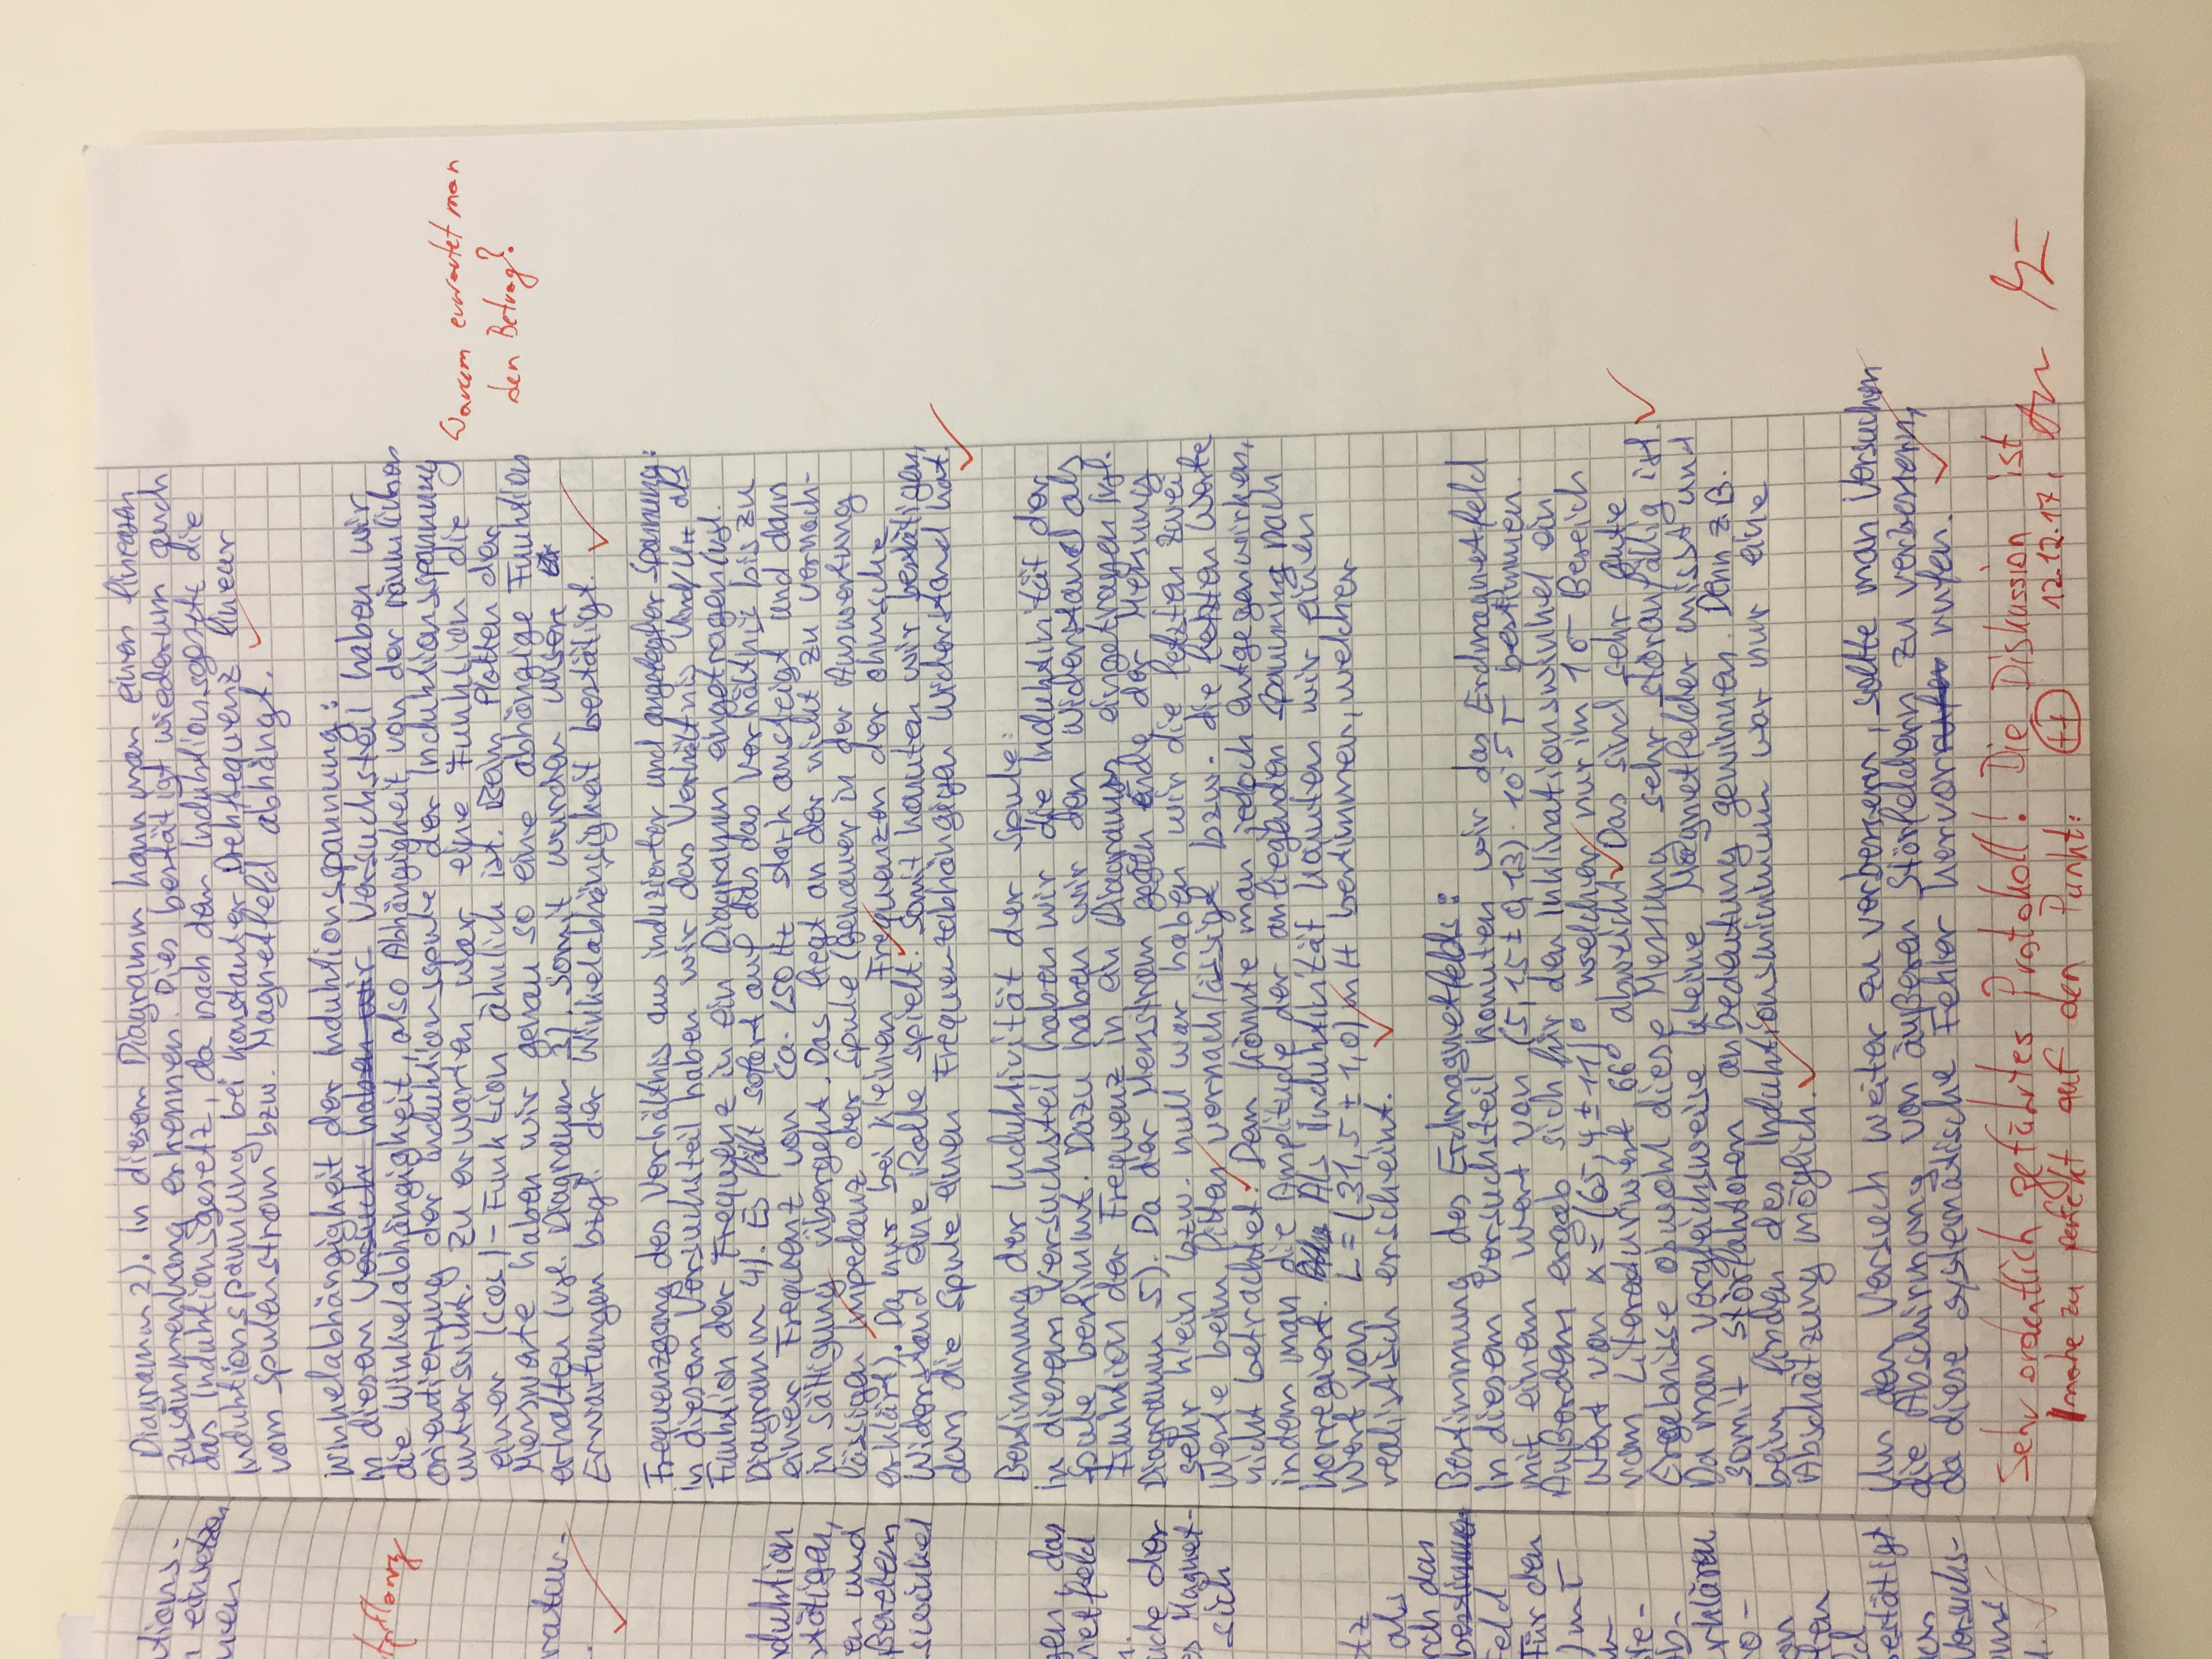 Diagramm 2). In diesem Diagramm kann man einen linearen
Zusammenhang erkennen. Dies bestätigt wiederum auch
das Induktionsgesetz, da nach dem Induktionsgesetz die
Induktionsspannung bei konstanter Drehfrequenz linear
vom Spulenstrom bzw. Magnetfeld abhängt.
Winkelabhängigkeit der Induktionsspannung:
In diesem Versuch haben wir Versuchsteil haben wir
die Winkelabhängigkeit, also Abhängigkeit von der räumlichen
orientierung der induktionsspule der Induktionsspannung
untersucht. Zu erwarten war eine Funktion die
einer |cos|-Funktion ähnlich ist. Beim Plotten der
Messwerte haben wir genau so eine abhängige Funktion
erhalten (vgl. Diagramm 3). Somit wurden unsere
Erwartungen bzgl. der Winkelabhängigkeit bestätigt.
Warum erwartet man
den Betrag?
Frequenzgang des Verhältnis aus induzierter und angelegter Spannung:
In diesem Versuchsteil haben wir das Verhältnis Uind/UH als
Funktion der Frequenz in ein Diagramm eingetragen (vgl.
Diagramm 4). Es fällt sofort auf das das Verhältnis bis zu
einer Frequenz von ca. 150 Hz stark ansteigt und dann
in Sättigung übergeht. Das liegt an der nicht zu vernach-
lässigen Impedanz der Spule (genauer in der Auswertung
erklärt). Da nur bei kleinen Frequenzen der ohmsche
Widerstand eine Rolle spielt. Somit konnten wir bestätigen,
dass die Spule einen Frequenzabhängigen Widerstand hat.
Bestimmung der Induktivität der Spule:
In diesem Versuchsteil haben wir die Induktivität der
Spule bestimmt. Dazu haben wir den Widerstand als
Funktion der Frequenz in ein Diagramm eingetragen (vgl.
Diagramm 5). Da der Messstrom gegen Ende der Messung
sehr klein bzw. null war haben wir die letzten zwei
Werte beim fitten vernachlässigt bzw. die letzten Werte
nicht betrachtet. Dem könnte man jedoch entgegenwirken,
indem man die Amplitude der anliegenden Spannung nach
korregiert. Als Induktivität konnten wir einen
Wert von L = (31,5 ± 1,0) mH bestimmen, welcher
realistisch erscheint.
Bestimmung des Erdmagnetfelds:
In diesem Versuchsteil konnten wir das Erdmagnetfeld
mit einem Wert von (5,15 ± 0,13) · 10⁻⁵ T bestimmen.
Außerdem ergab sich für den Inklinationswinkel ein
Wert von α = (65,4 ± 11)° welcher nur im 1σ Bereich
vom Literaturwert 66° abweicht. Das sind sehr gute
Ergebnisse obwohl diese Messung sehr störanfällig ist.
Da man vergleichsweise kleine Magnetfelder misst und
somit Störfaktoren anbedeutung gewinnen. Denn z.B.
beim finden des Induktionsminimum war nur eine
Abschätzung möglich.
Um den Versuch weiter zu verbessern, sollte man Versuchen
die Abschirmung von äußeren Störfeldern zu verbessern,
da diese systematische Fehler hervorrufen rufen.
Sehr ordentlich geführtes Protokoll! Die Diskussion ist
nahe zu perfekt auf den Punkt.
++
12.12.17,